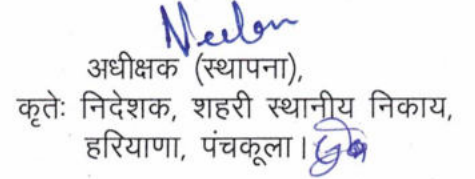 Neelam
अधीक्षक (स्थापना),
कृतेः निदेशक, शहरी स्थानीय निकाय,
हरियाणा, पंचकूला।